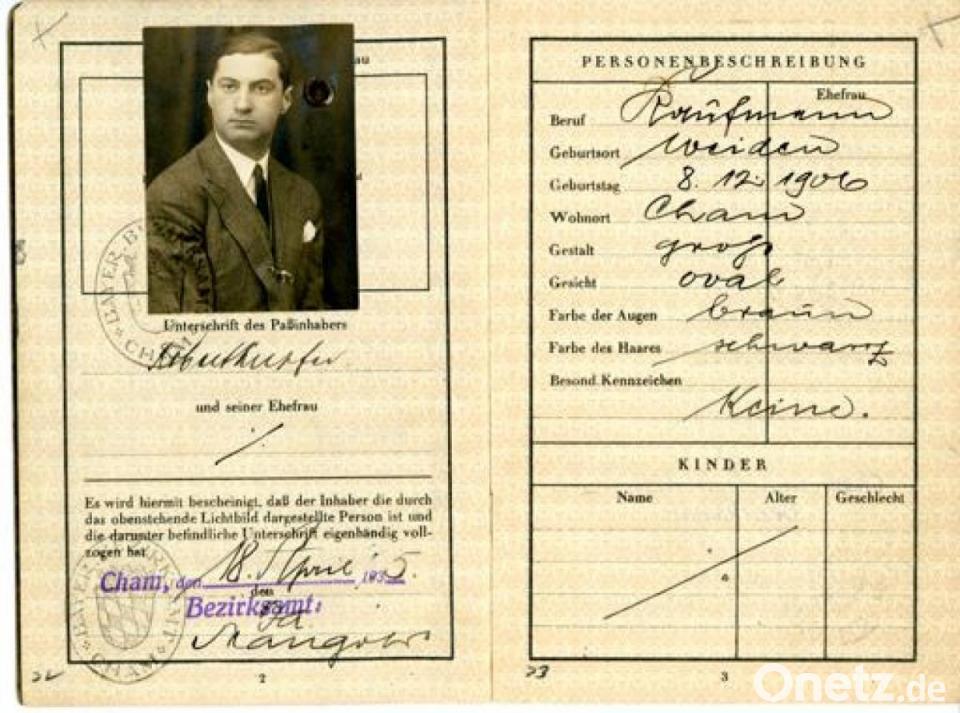 Unterschrift des Paßinhabers
und seiner Ehefrau
Es wird hiermit bescheinigt, daß der Inhaber die durch
das obenstehende Lichtbild dargestellte Person ist und
die darunter befindliche Unterschrift eigenhändig voll-
zogen hat.
Cham, den 18. April 1935.
den
Bezirksamt:
CHAM
2
PERSONENBESCHREIBUNG
Ehefrau
Beruf Kaufmann
Geburtsort Weiden
Geburtstag 8. 12. 1906
Wohnort Cham
Gestalt groß
Gesicht oval
Farbe der Augen braun
Farbe des Haares schwarz
Besond. Kennzeichen
Keine.
KINDER
Name Alter Geschlecht
23
3
Onetz.de